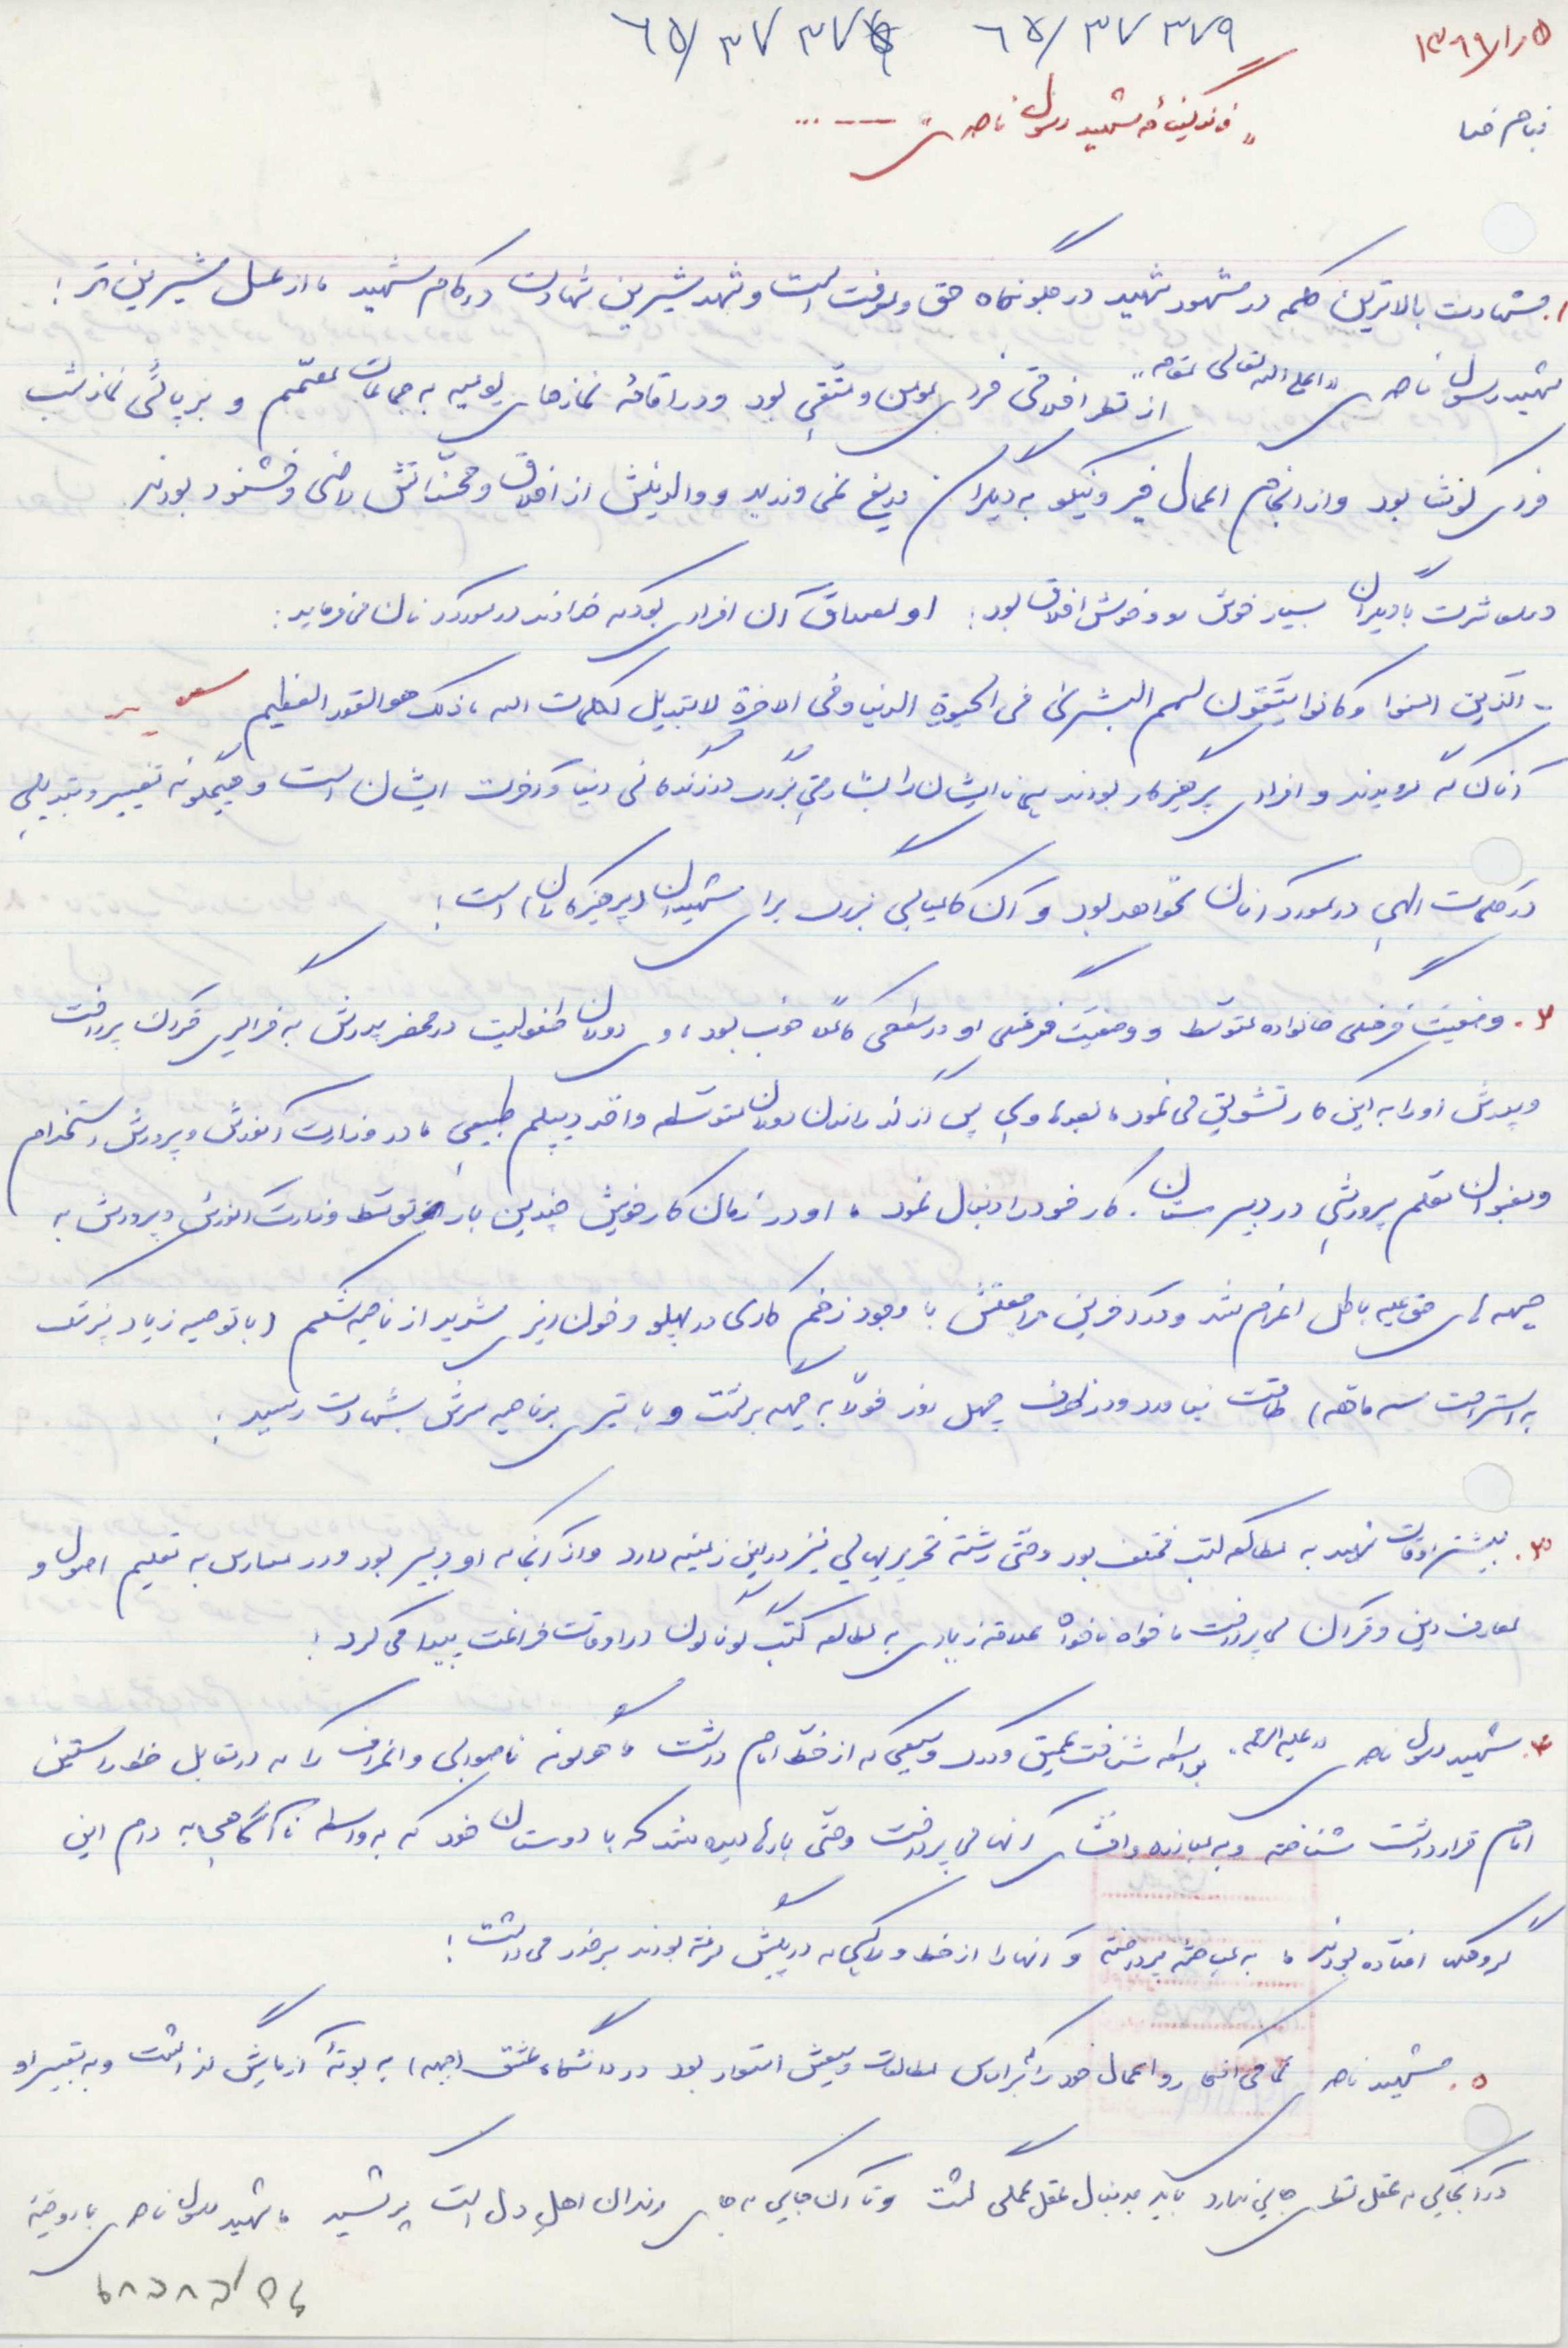 ۶۵/۳۷۳۷۹
بنام خدا
"زندگینامه شهید رسول ناصری" ----...
۱. شهادت بالاترین کلمه در مشهود شهید در جلوه‌گاه حق و معرفت است و شهد شیرین شهادت در کام شهید، از عسل شیرین تر!
شهید رسول ناصری "اعلی الله تعالی مقامه" از نظر اخلاقی فردی مومن و متقی بود و در اقامهٔ نمازهای یومیه به جماعات مصمم و برپائی نماز شب
فردی کوشا بود و از انجام اعمال خیر و نیکو به دیگران دریغ نمی ورزید و والدینش از اخلاق و محسناتش راضی و خشنود بودند.
در معاشرت با دیگران بسیار خوش رو و خوش اخلاق بود؛ او مصداق آن افرادی بود که خداوند در موردشان می فرماید:
.. الذین امنوا و کانوا یتقون لهم البشری فی الحیوة الدنیا و فی الاخرة لا تبدیل لکلمت الله، ذلک هو الفوز العظیم
آنان که گرویدند و افرادی پرهیزکار بودند همانا ایشان را بشارتی بزرگ در زندگانی دنیا و آخرت ایشان است و هیچگونه تغییر و تبدیلی
در کلمات الهی در مورد آنان نخواهد بود و آن کامیابی بزرگ برای شهیدان (پرهیزکاران) است!
۲. وضعیت فرهنگی خانواده متوسط و وضعیت فرهنگی او در سطحی کاملا خوب بود، وی دوران طفولیت در محضر پدرش به فراگیری قرآن پرداخت
و پدرش او را به این کار تشویق می نمود، بعدها وی پس از گذراندن دوران متوسطه و اخذ دیپلم طبیعی، در وزارت آموزش و پرورش استخدام
و بعنوان معلم پرورشی در دبیرستان. کار خود را دنبال نمود، او در زمان کار خویش چندین بار توسط وزارت آموزش و پرورش به
جبهه های حق علیه باطل اعزام شد و در آخرین مراجعتش با وجود زخم کاری در پهلو و خون ریزی شدید از ناحیه شکم (با توصیه زیاد پزشک
به استراحت سه ماهه) طاقت نیاورد و در ظرف چهل روز فورا به جبهه برگشت و با تیری بر ناحیه سرش بشهادت رسید؛
۳. بیشتر اوقات شهید به مطالعه کتب مختلف بود و حتی رشته تحریرهایی نیز در این زمینه دارد و از آنجا که او دبیر بود و در مدارس به تعلیم اصول و
معارف دین و قرآن می پرداخت، خواه ناخواه علاقه زیادی به مطالعه کتب گوناگون در اوقات فراغت پیدا می کرد!
۴. شهید رسول ناصری "علیه الرحمه" بواسطه شناخت عمیق و درک وسیعی که از خط امام داشت، هرگونه ناصوابی و انحراف را که در مقابل خط راستین
امام قرار داشت شناخته و به مبارزه و افشای آنها می پرداخت و حتی بارها دیده شد که با دوستان خود که به واسطه ناآگاهی به دام این
گروهکها افتاده بودند، به مباحثه پرداخته و آنها را از خط و راهی که در پیش گرفته بودند برحذر می داشت!
۵. شهید ناصری تمامی افکار و اعمال خود را که بر اساس مطالعات وسیعش استوار بود در دانشگاه عشق (جبهه) به بوتهٔ آزمایش گذاشت و به تعبیر او
در آنجائی که عقل نظری جایی ندارد باید به دنبال عقل عملی گشت و تا آن جایی که جای رندان اهل دل است پر کشید، شهید رسول ناصری با روحیهٔ